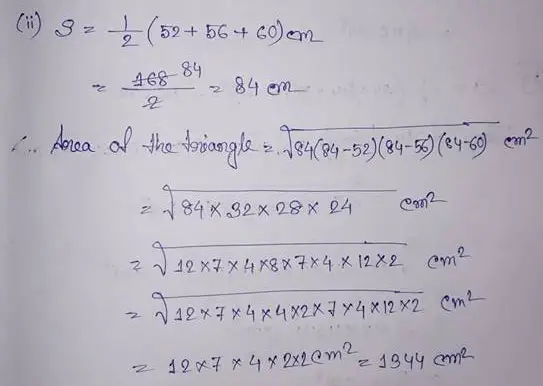 (ii) S = 1/2 (52 + 56 + 60) cm
= 168 84 / 2 = 84 cm
∴ Area of the triangle = √84(84-52)(84-56)(84-60) cm²
= √84 × 32 × 28 × 24 cm²
= √12 × 7 × 4 × 8 × 7 × 4 × 12 × 2 cm²
= √12 × 7 × 4 × 4 × 2 × 7 × 4 × 12 × 2 cm²
= 12 × 7 × 4 × 2 × 2 cm² = 1344 cm²